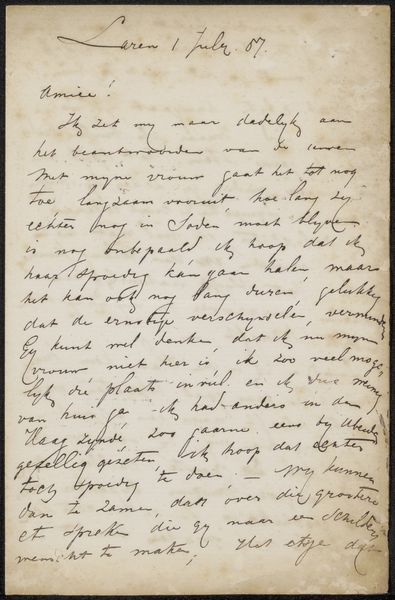 Laren 1 July. 87.
Amice!
Ik zet my maar dadelyk aan
het beantwoorden van de uwen
Met myne vrouw gaat het tot nog
toe langzaam vooruit, hoe lang zy
echter nog in Soden moet blyven
is nog onbepaald ik hoop dat ik
haar spoedig kan gaan halen, maar
het kan ook nog lang duren, gelukkig
dat de ernstige verschynselen, verminderen
Gy kunt wel denken, dat ik nu myn
vrouw niet hier is, ik zoo veel moge-
lyk die plaats invul. en ik dus weinig
van huis ga - ik had anders in den
Haag zynde zoo gaarne eens by U
gezellig gezeten. ik hoop dat echter
toch spoedig te doen. - wy kunnen
dan te zamen, dat over die grootere
ets spreken die gy naar een schildery
wenscht te maken, Het etsje dat